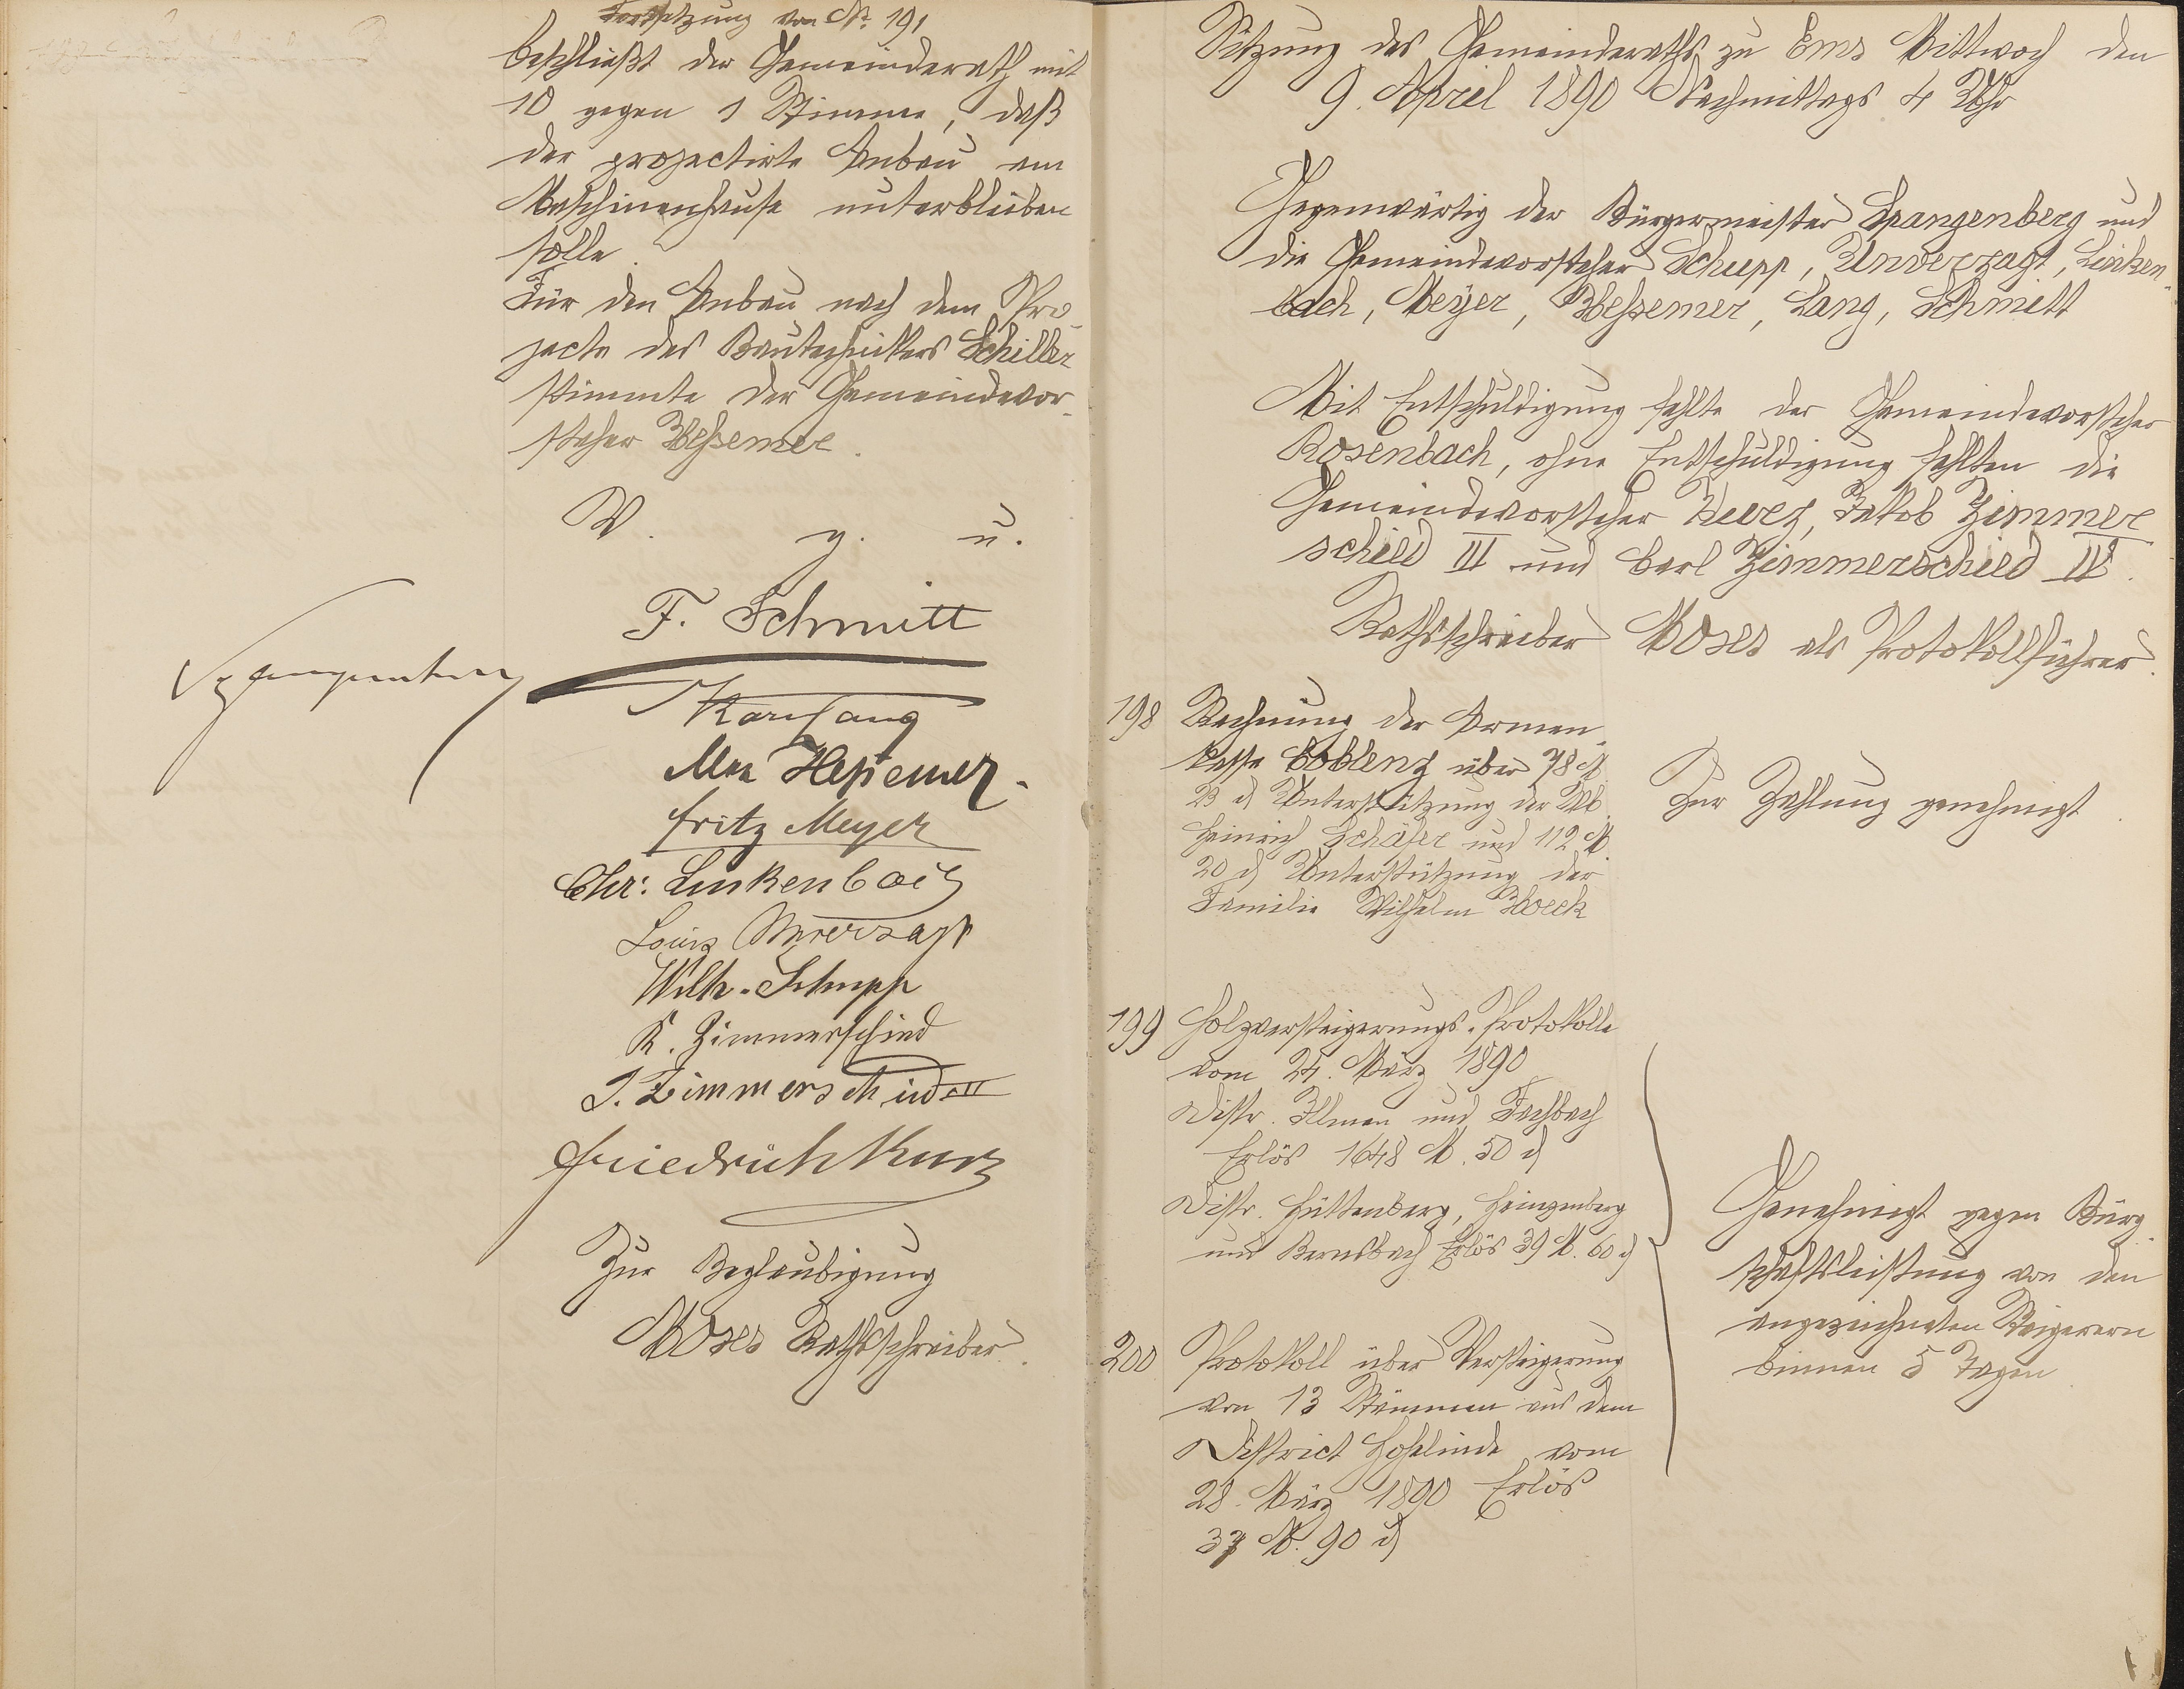 Fortsetzung von No 191
beschließt der Gemeinderath mit
10 gegen 1 Stimme, daß
der projectirte Anbau am
Maschinenhause unterbleiben
solle.
Für den Anbau nach dem Pro-
jecte des Bautechnikers Schiller
stimmte der Gemeindevor-
steher Heßemer.
V. g. u.
F. Schmitt
Spangenberg
Karl Lang
Max Heßemer.
Fritz Meyer
Chr: Linkenbach
Louis Unverzagt
Wilh. Schupp
K. Zimmerschied
J. Zimmerschied III
Friedrich Kurz
Zur Beglaubigung
Moses Rathsschreiber.
Sitzung des Gemeinderaths zu Ems Mittwoch den
9. April 1890 Nachmittags 4 Uhr
Gegenwärtig der Bürgermeister Spangenberg und
die Gemeindevorsteher Schupp, Unverzagt, Linken-
bach, Meyer, Heßemer, Lang, Schmitt
Mit Entschuldigung fehlte der Gemeindevorsteher
Rosenbach, ohne Entschuldigung fehlten die
Gemeindevorsteher Kurz, Jakob Zimmer
schied III und Carl Zimmerschied IV.
Rathsschreiber Moses als Protokollführer.
198 Rechnung der Armen-
kasse Coblenz über 78 M
23 d Unterstützung der Wb.
Heinrich Schäfer und 112 M.
20 d Unterstützung der
Familie Wilhelm Hoeck
Zur Zahlung genehmigt.
199 Holzversteigerungs-Protokolle
vom 24. März 1890
Distr. Ulmen und Fachbach
Erlös 1648 M. 50 d
Distr. Hüttenberg, Heinzenberg
und Bernsbach Erlös 39 M. 60 d
200 Protokoll über Versteigerung
von 13 Stämmen aus dem
District Hohelinde vom
28. März 1890 Erlös
37 M. 90 d
Genehmigt gegen Bürg-
schaftsleistung von den
angezeichneten Steigerern
binnen 5 Tagen